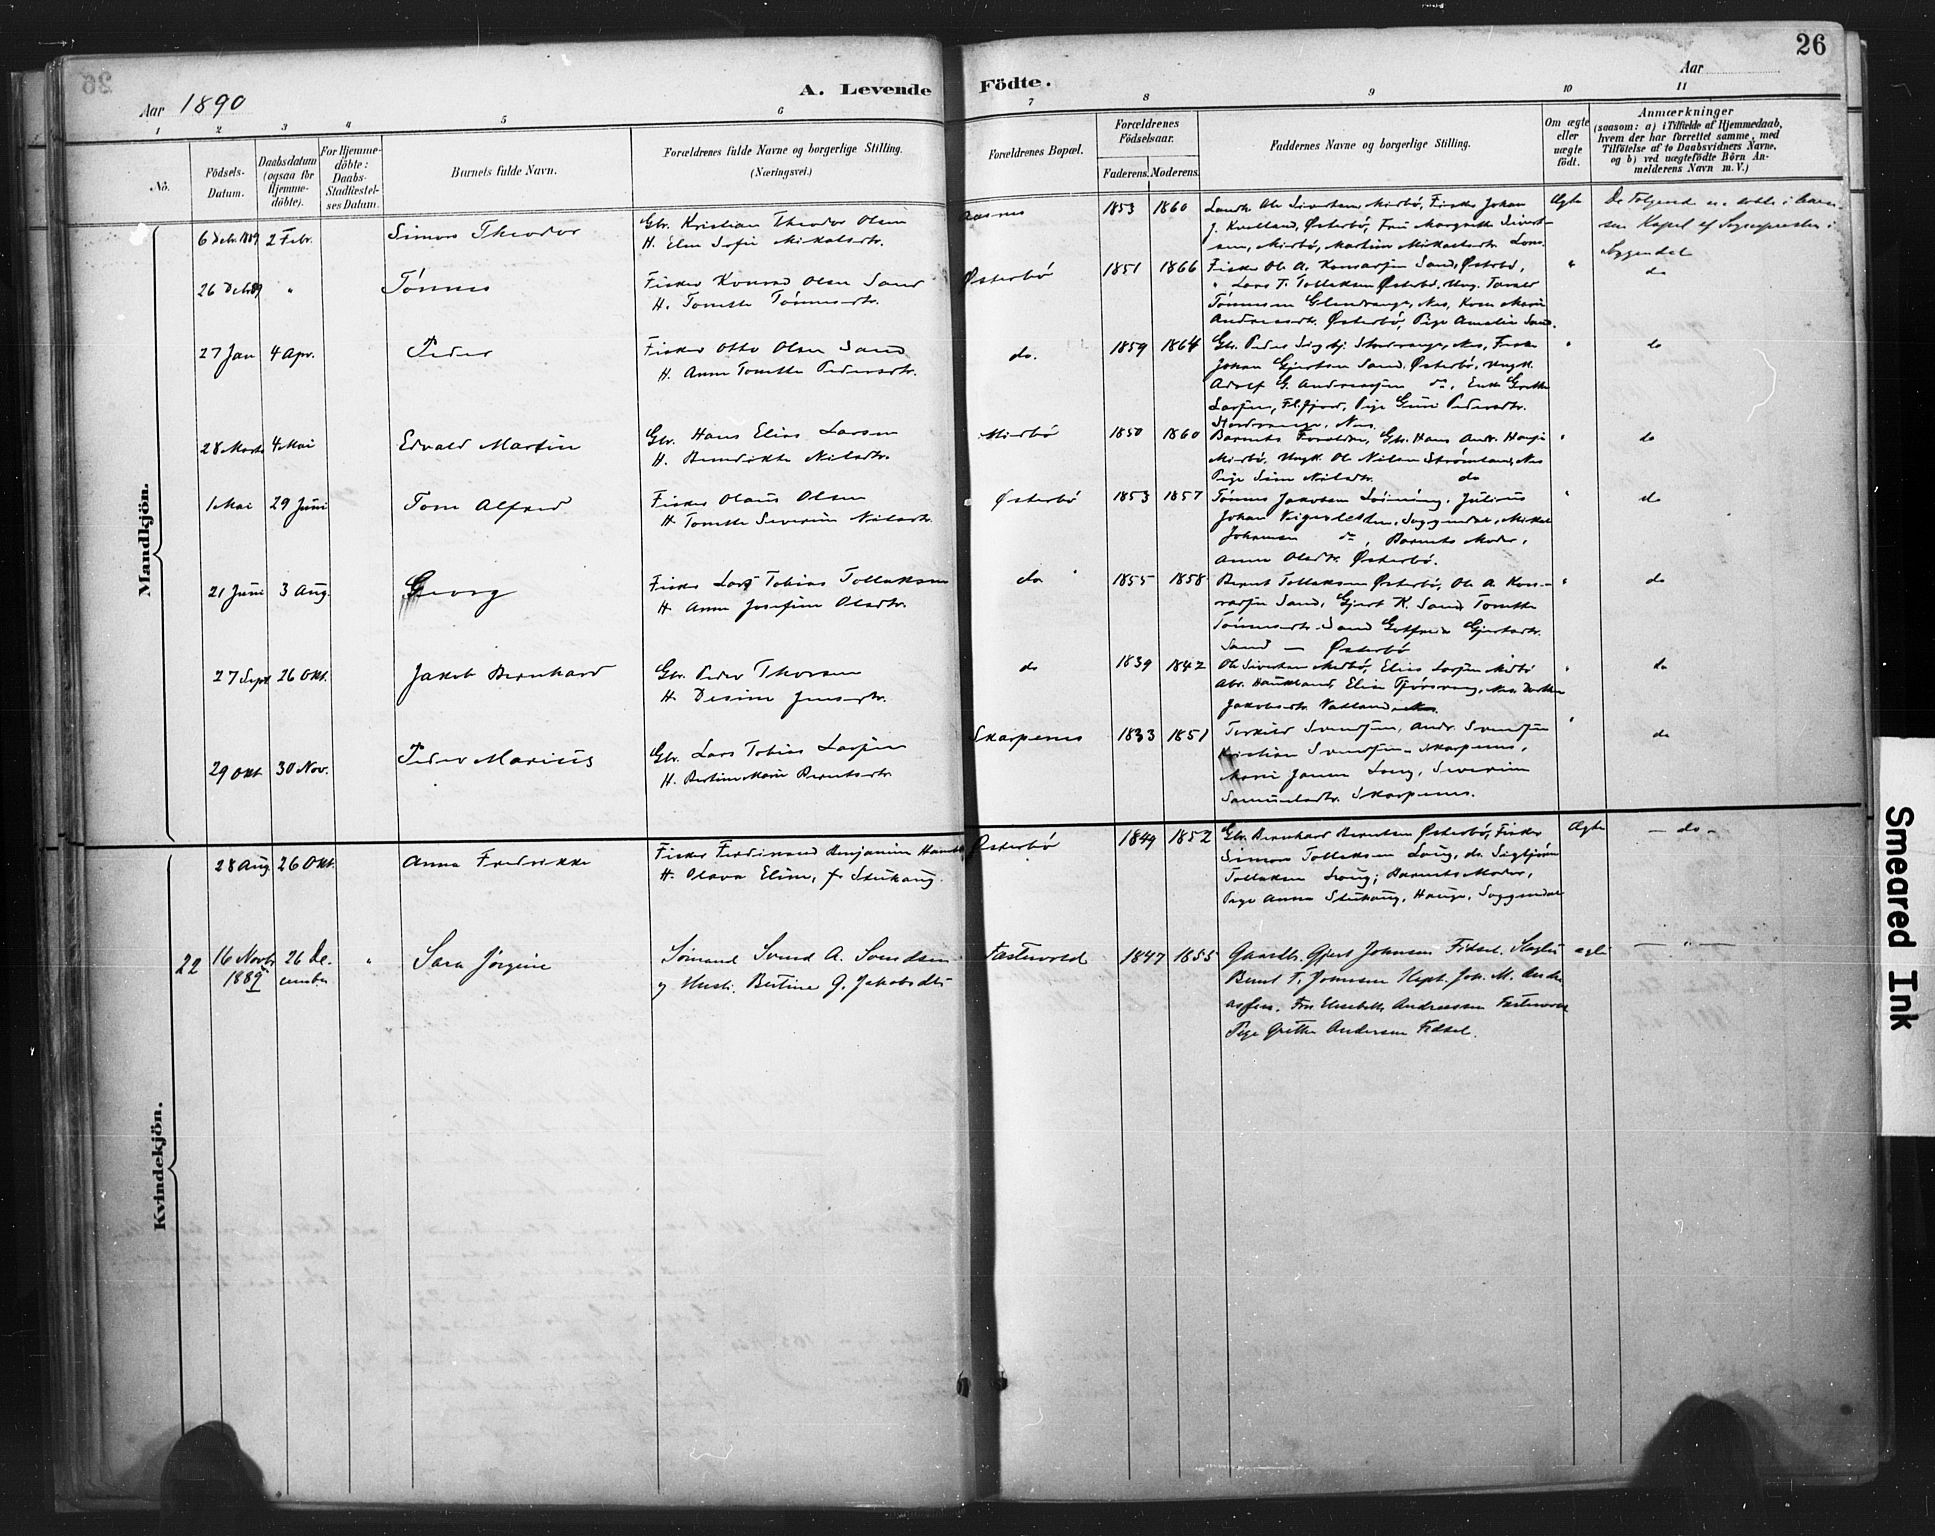 26
Aar 1890
A. Levende Födte.
Aar
1 2 3 4 5 6 7 8 9 10 11
No.
Födsels-Datum.
Daabsdatum (ogsaa for Hjemme-döbte).
For Hjemme-döbte: Daabs-Stadfæstel-ses Datum.
Barnets fulde Navn.
Forældrenes fulde Navne og borgerlige Stilling. (Næringsvei.)
Forældrenes Bopæl.
Forældrenes Födselsaar.
Faderens. Moderens.
Faddernes Navne og borgerlige Stilling.
Om ægte eller uægte födt.
Anmærkninger
(saasom: a) i Tilfælde af Hjemmedaab, hvem der har forrettet samme, med Tilföielse af to Daabsvidners Navne, og b) ved uægtefödte Börn An-melderens Navn m. V.)
Mandkjön.
6 Debr. 1889 2 Febr. Simon Theodor
Gbr. Kristian Theodor Olsen
H. Elen Sofie Mikalsdtr.
Aasnes 1853 1860
Ole Sivertsen Midbö, Fisker Johan
J. Kvelland, Østerbö, Fru Margrethe Sivert-
sen, Midbö, Martine
Ægte
De Følgende
Kapel af Sognepresten i
Soggendal
26 Debr 89 " Tönnes
Fisker Konrad Olsen Sand
H. Tomette Tönnesdtr.
Østerbö 1851 1866
Fisker Ole A. Konradsen Sand, Østerbö,
" Lars T. Tollaksen Østerbö, Ung. Torvald
Tönnesen, Nes, Kone Marie
Andreasdtr. Østerbö, Pige Amalie Sand.
" do
27 Jan 4 Apr. Peder
Fisker Otto Olsen Sand
H. Anne Tomette Pedersdtr.
do. 1859 1864
Gbr. Peder Sigbj. Nes, Fisker
Johan Gjertsen Sand, Østerbö, Ungk.
Adolf G. Andreassen do, Enke Grethe
Larsen, Fl.fjord, Pige Guri Pedersdtr.
Nes.
" do
28 Marts 4 Mai Edvald Martin
Gbr. Hans Elias Larsen
H. Benedikte Nilsdtr.
Midbö 1850 1860
Barnets Forældre, Gbr. Hans Andr. Hauge
Midbö, Ungk. Ole Nilsen Strömland, Nes
Pige Sine Nilsdtr. do
" do
1 Mai 29 Juni Tom Alfred
Fisker Olaus Olsen
H. Tomette Severine Nilsdtr.
Østerbö 1853 1857
Tönnes Jakobsen Julius
Johan Soggendal, Mikal
Johansen do, Barnets Moder,
Anna Olsdtr. Østerbö.
" do
21 Juni 3 Aug. Georg
Fisker Lars Tobias Tollaksen
H. Anne Josefine Olsdtr.
do 1855 1858
Bernt Tollaksen Østerbö, Ole A. Kon-
radsen Sand, Gjert K. Sand Tomette
Tönnesdtr. Sand Gjertsdtr.
Sand — Østerbö
" do
27 Sept 26 Okt. Jakob Bernhard
Gbr. Peder Thorsen
H. Desine Jensdtr.
do 1839 1842
Ole Sivertsen Midbö, Elias Larsen Midbö
Abr. Haukland, Elise Nes, Dorthe
Jakobsdtr. Vatland
" do
29 Okt 30 Nov. Peder Marius
Gbr. Lars Tobias Larsen
H. Bertine Marie Berntsdtr.
Skarpenes 1833 1851
Terkild Svendsen, Andr. Svendsen
Kristian Svendsen Skarpenes,
Marie Janne Loug, Severine
Samuelsdtr. Skarpenes.
" do
Kvindekjön.
28 Aug. 26 Okt. Anna Fredrikke
Fisker Ferdinand Benjamin
H. Olava Eline, f.
Østerbö 1849 1852
Gbr. Bernhard Berntsen Østerbö, Fisker
Simon Tollaksen Loug, do. Sigbjörn
Tollaksen Loug, Barnets Moder,
Pige Anna Hauge, Soggendal
Ægte — do —
22 16 Novbr. 1889 26 De-cember " Sara Jörgine
Sömand Svend A. Svendsen
og Hustr. Bertine G. Jakobsdtr
Fastevold 1847 1855
Gaardb. Gjert Johnsen Fidsel.
Bernt T. Johnsen Kept. Joh. M. Andre
assen. Fru Elisabeth Andreassen Fastevold
Pige Grethe Andersen Fidsel.
ægte — " —
Smeared Ink